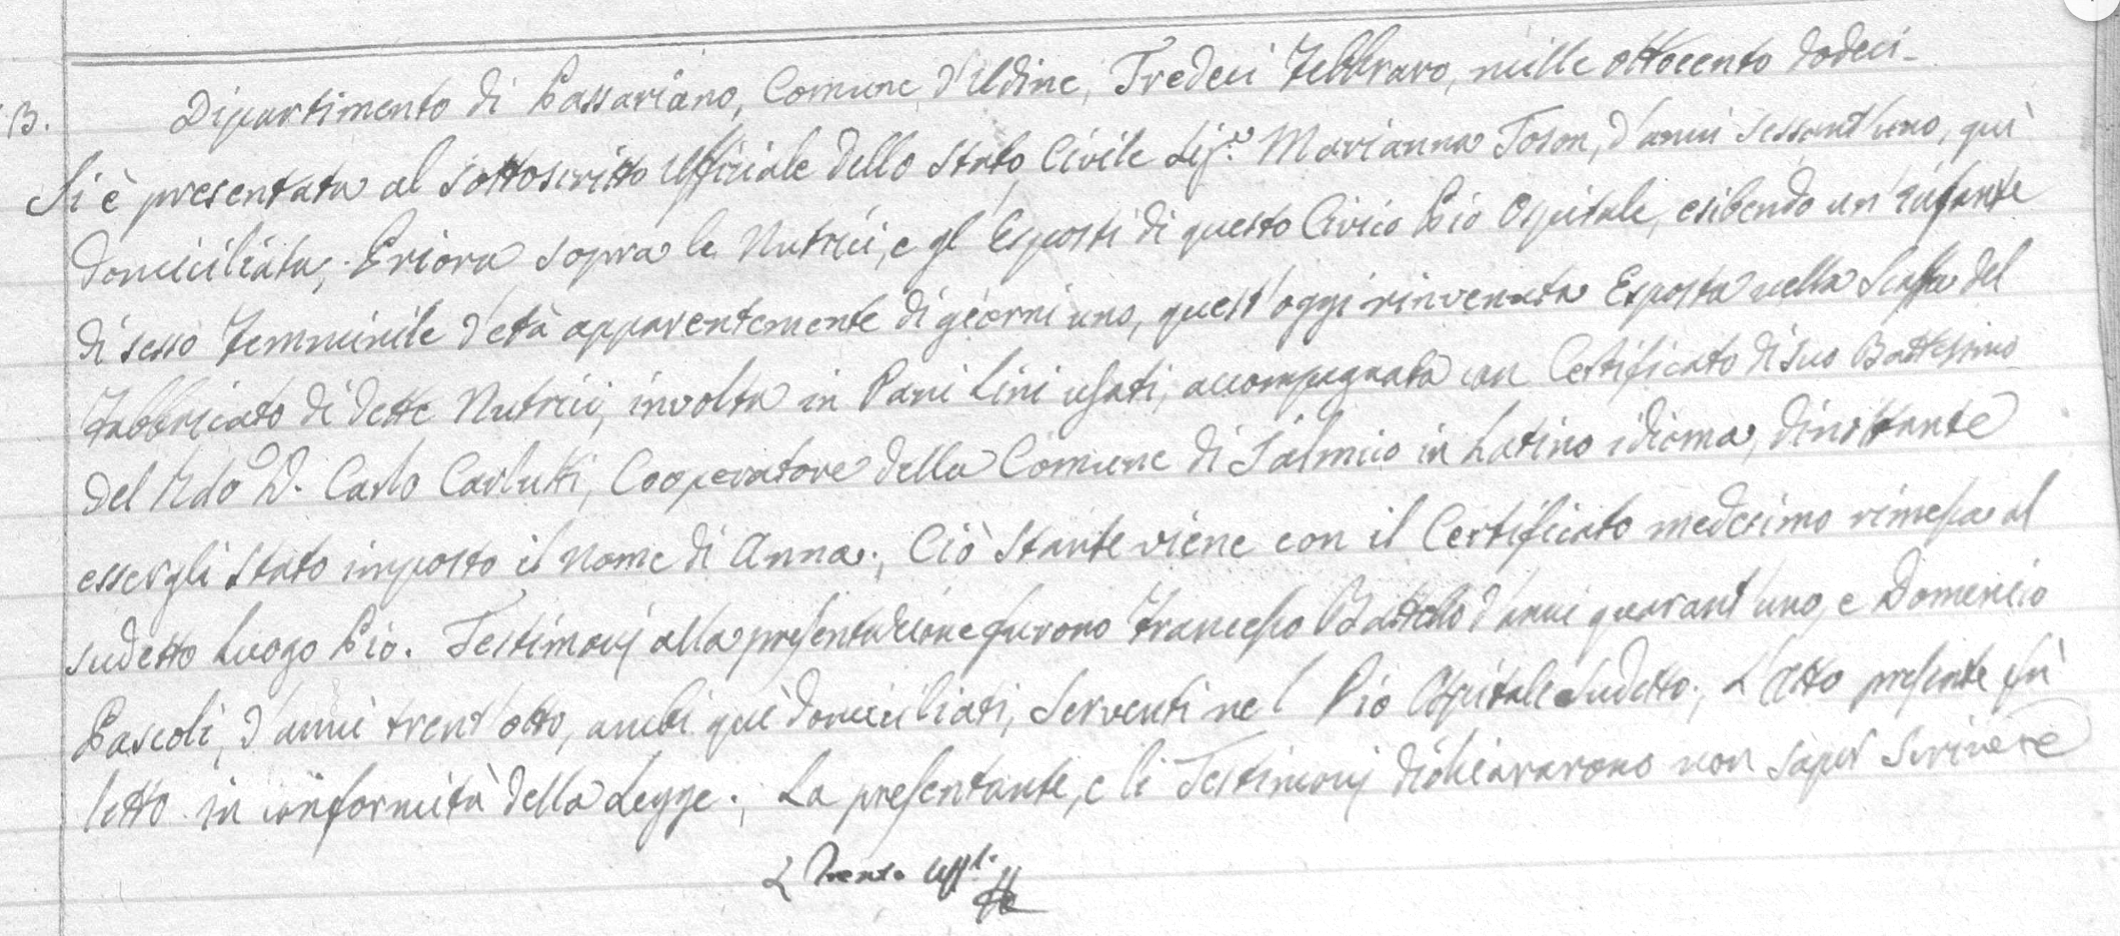 13. Dipartimento di Passariano, Comune d'Udine, Tredeci Febbraro, mille ottocento dodeci.
Si è presentata al sottoscritto Ufficiale dello Stato Civile Sig.ra Marianna Toson, d'anni sessant'uno, quì
domiciliata, Priora sopra le Nutrici, e gl'Esposti di questo Civico Pio Ospitale, esibendo un'Infante
di sesso Femminile d'età apparentemente di giorni uno, quest'oggi rinvenuta Esposta nella Scaffa del
Fabbricato di dette Nutrici, involta in Pani Lini usati, accompagnata con Certificato di suo Battesimo
del Rdo D. Carlo Carlutti, Cooperatore della Comune di Jalmico in Latino idioma, dinottante
essergli stato imposto il nome di Anna; Ciò stante viene con il Certificato medesimo rimessa al
sudetto Luogo Pio. Testimonj alla presentazione furono Francesco Battello d'anni quarant'uno, e Domenico
Pascoli, d'anni trent'otto, ambi quì domiciliati, Serventi nel Pio Ospitale sudetto; L'Atto presente fù
letto in conformità della Legge; La presentante, e li Testimonj dichiararono non saper scrivere